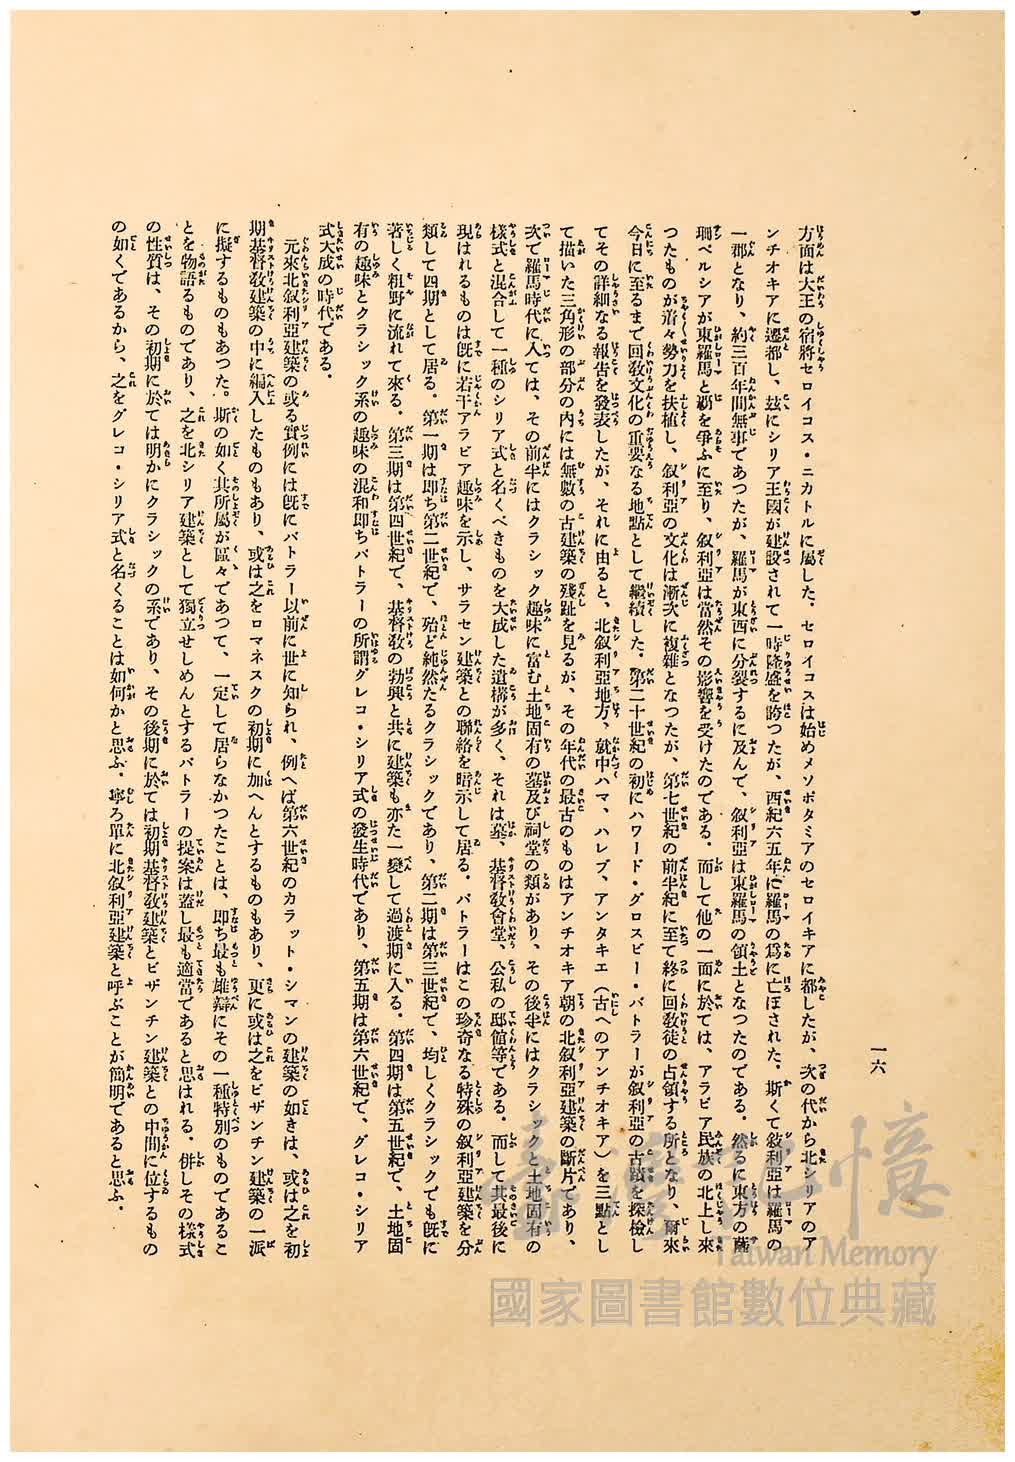 一六
方面は大王の宿將セロイコス・ニカトルに屬した。セロイコスは始めメソポタミアのセロイキアに都したが、次の代から北シリアのア
ンチオキアに遷都し、玆にシリア王國が建設されて一時隆盛を誇つたが、西紀六五年に羅馬の爲に亡ぼされた。斯くて敍利亞は羅馬の
一郡となり、約三百年間無事であつたが、羅馬が東西に分裂するに及んで、敍利亞は東羅馬の領土となつたのである。然るに東方の薩
珊ペルシアが東羅馬と覇を爭ふに至り、敍利亞は當然その影響を受けたのである。而して他の一面に於ては、アラビア民族の北上し來
つたものが着々勢力を扶植し、敍利亞の文化は漸次に複雜となつたが、第七世紀の前半紀に至て終に回敎徒の占領する所となり、爾來
今日に至るまで回敎文化の重要なる地點として繼續した。第二十世紀の初にハワード・グロスビー・バトラーが敍利亞の古蹟を探檢し
てその詳細なる報告を發表したが、それに由ると、北敍利亞地方、就中ハマ、ハレブ、アンタキエ（古へのアンチオキア）を三點とし
て描いた三角形の部分の内には無數の古建築の殘趾を見るが、その年代の最古のものはアンチオキア朝の北敍利亞建築の斷片であり、
次で羅馬時代に入ては、その前半にはクラシック趣味に富む土地固有の墓及び祠堂の類があり、その後半にはクラシックと土地固有の
樣式と混合して一種のシリア式と名くべきものを大成した遺構が多く、それは墓、基督敎會堂、公私の邸館等である。而して其最後に
現はれるものは旣に若干アラビア趣味を示し、サラセン建築との聯絡を暗示して居る。バトラーはこの珍奇なる特殊の敍利亞建築を分
類して四期として居る。第一期は卽ち第二世紀で、殆ど純然たるクラシックであり、第二期は第三世紀で、均しくクラシックでも旣に
著しく粗野に流れて來る。第三期は第四世紀で、基督敎の勃興と共に建築も亦た一變して過渡期に入る。第四期は第五世紀で、土地固
有の趣味とクラシック系の趣味の混和卽ちバトラーの所謂グレコ・シリア式の發生時代であり、第五期は第六世紀で、グレコ・シリア
式大成の時代である。
元來北敍利亞建築の或る實例には旣にバトラー以前に世に知られ、例へば第六世紀のカラット・シマンの建築の如きは、或は之を初
期基督敎建築の中に編入したものもあり、或は之をロマネスクの初期に加へんとするものもあり、更に或は之をビザンチン建築の一派
に擬するものもあつた。斯の如く其所屬が區々であつて、一定して居らなかつたことは、卽ち最も雄辯にその一種特別のものであるこ
とを物語るものであり、之を北シリア建築として獨立せしめんとするバトラーの提案は蓋し最も適當であると思はれる。併しその樣式
の性質は、その初期に於ては明かにクラシックの系であり、その後期に於ては初期基督敎建築とビザンチン建築との中間に位するもの
の如くであるから、之をグレコ・シリア式と名くることは如何かと思ふ。寧ろ單に北敍利亞建築と呼ぶことが簡明であると思ふ。
臺灣記憶
Taiwan Memory
國家圖書館數位典藏